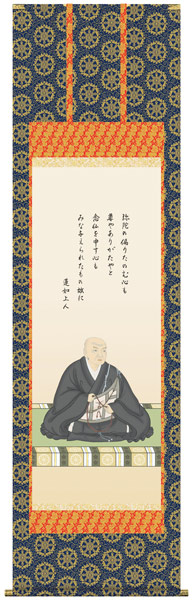 弥陀の偏りたのむ心も
尊やありがたやと
念仏を申す心も
みな与えられたもの故に
蓮如上人